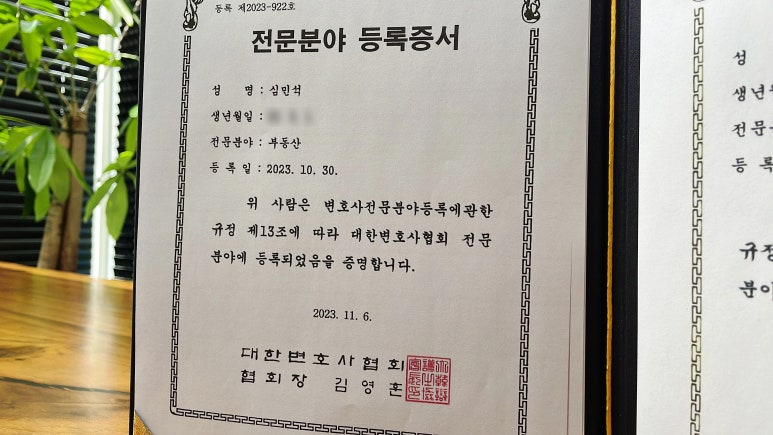 등록 제2023-922호
전문분야 등록증서
성 명 : 심민석
생년월일 :
전문분야 : 부동산
등 록 일 : 2023. 10. 30.
위 사람은 변호사전문분야등록에관한
규정 제13조에 따라 대한변호사협회 전문
분야에 등록되었음을 증명합니다.
2023. 11. 6.
대한변호사협회
협회장 김영훈
성
생년
전문
등 록
규정
분야